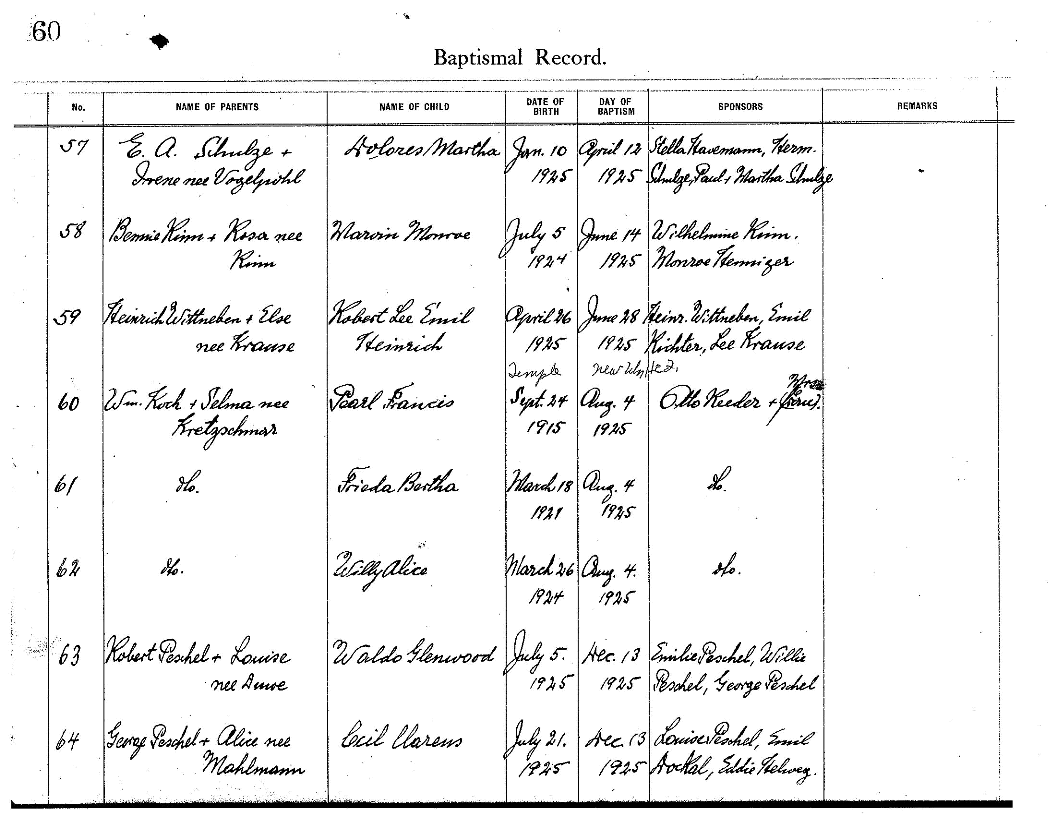 60
Baptismal Record.
No. NAME OF PARENTS NAME OF CHILD DATE OF BIRTH DAY OF BAPTISM SPONSORS REMARKS
57 E. A. Schulze + Dolores Martha Jan. 10 April 12 Stella Havemann, Herm.
Irene nee Vogelpohl 1925 1925 Schulze, Paul + Martha Schulze
58 Bennie Kinn + Rosa nee Marvin Monroe July 5 June 14 Wilhelmine Kinn.
Kinn 1924 1925 Monroe Henniger
59 Heinrich Wittneben + Else Robert Lee Emil April 26 June 28 Heinr. Wittneben, Emil
nee Krause Heinrich 1925 1925 Richter, Lee Krause
Temple
60 Wm. Koch + Selma nee Pearl Francis Sept. 24 Aug. 4 Otto Reeder + Mrs.
Kretzschmar 1915 1925
61 do. Frieda Bertha March 18 Aug. 4 do.
1921 1925
62 do. Willy Alice March 26 Aug. 4. do.
1924 1925
63 Robert Peschel + Louise Waldo Glenwood July 5. Dec. 13 Emilie Peschel, Willie
nee Duwe 1925 1925 Peschel, George Peschel
64 George Peschel + Alice nee Cecil Clarens July 21. Dec. 13 Louise Peschel, Emil
Mahlmann 1925 1925 Dockal, Eddie Helweg.